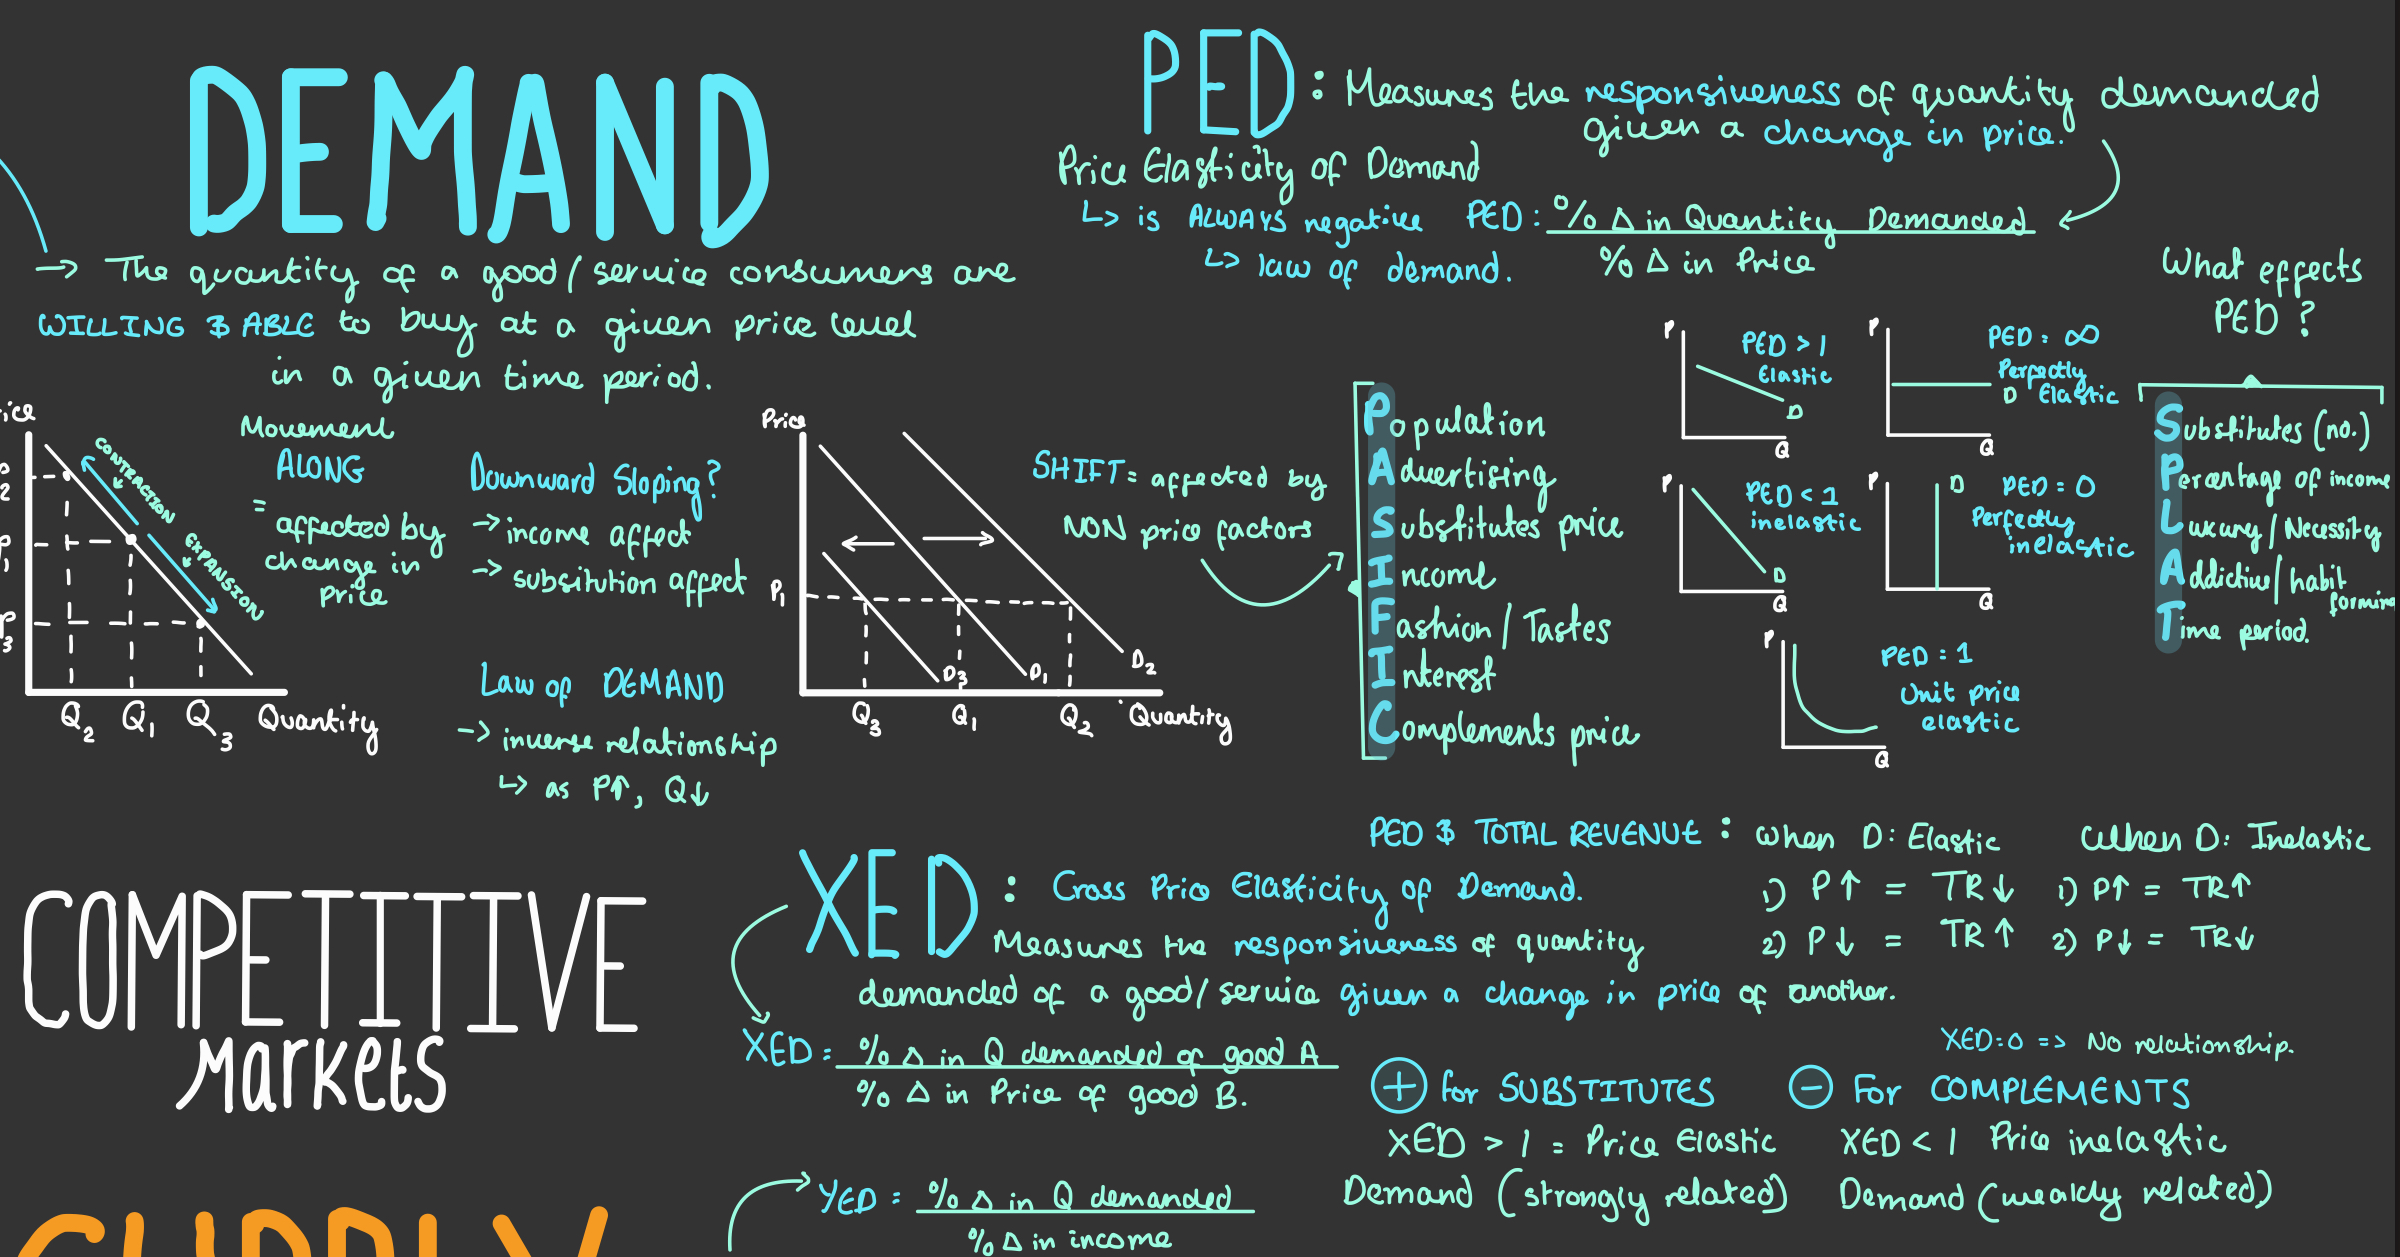 DEMAND
→ The quantity of a good / service consumers are
WILLING & ABLE to buy at a given price level
in a given time period.
Price
P2
P1
P3
CONTRACTION
EXPANSION
Q2 Q1 Q3 Quantity
Movement
ALONG
= affected by
change in
price
Downward Sloping?
→ income affect
→ subsitution affect
Law of DEMAND
→ inverse relationship
↳ as P↑, Q↓
Price
P1
D3 D1 D2
Q3 Q1 Q2 Quantity
SHIFT = affected by
NON price factors
Population
Advertising
Substitutes price
Income
Fashion / Tastes
Interest
Complements price
PED : Measures the responsiveness of quantity demanded
given a change in price.
Price Elasticity of Demand
↳ is ALWAYS negative
↳ law of demand.
PED : % Δ in Quantity Demanded
% Δ in Price
P
PED > 1
Elastic
D
Q
P
PED = ∞
Perfectly
Elastic
D
Q
P
PED < 1
inelastic
D
Q
P
D
PED = 0
Perfectly
inelastic
Q
P
PED = 1
Unit price
elastic
Q
What effects
PED ?
Substitutes (no.)
Percentage of income
Luxury / Necessity
Addictive / habit
forming
Time period.
PED & TOTAL REVENUE : When D: Elastic
1) P↑ = TR↓
2) P↓ = TR↑
When D: Inelastic
1) P↑ = TR↑
2) P↓ = TR↓
COMPETITIVE
Markets
XED : Cross Price Elasticity of Demand.
Measures the responsiveness of quantity
demanded of a good / service given a change in price of another.
XED = % Δ in Q demanded of good A
% Δ in Price of good B.
XED=0 => No relationship.
+ for SUBSTITUTES
XED > 1 = Price Elastic
Demand (strongly related)
- For COMPLEMENTS
XED < 1 Price inelastic
Demand (weakly related)
YED = % Δ in Q demanded
% Δ in income
SUPPLY